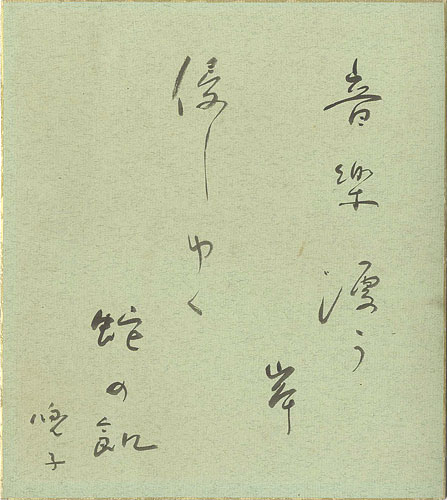 音樂漂う
岸
侵しゆく
蛇の飢
晩子